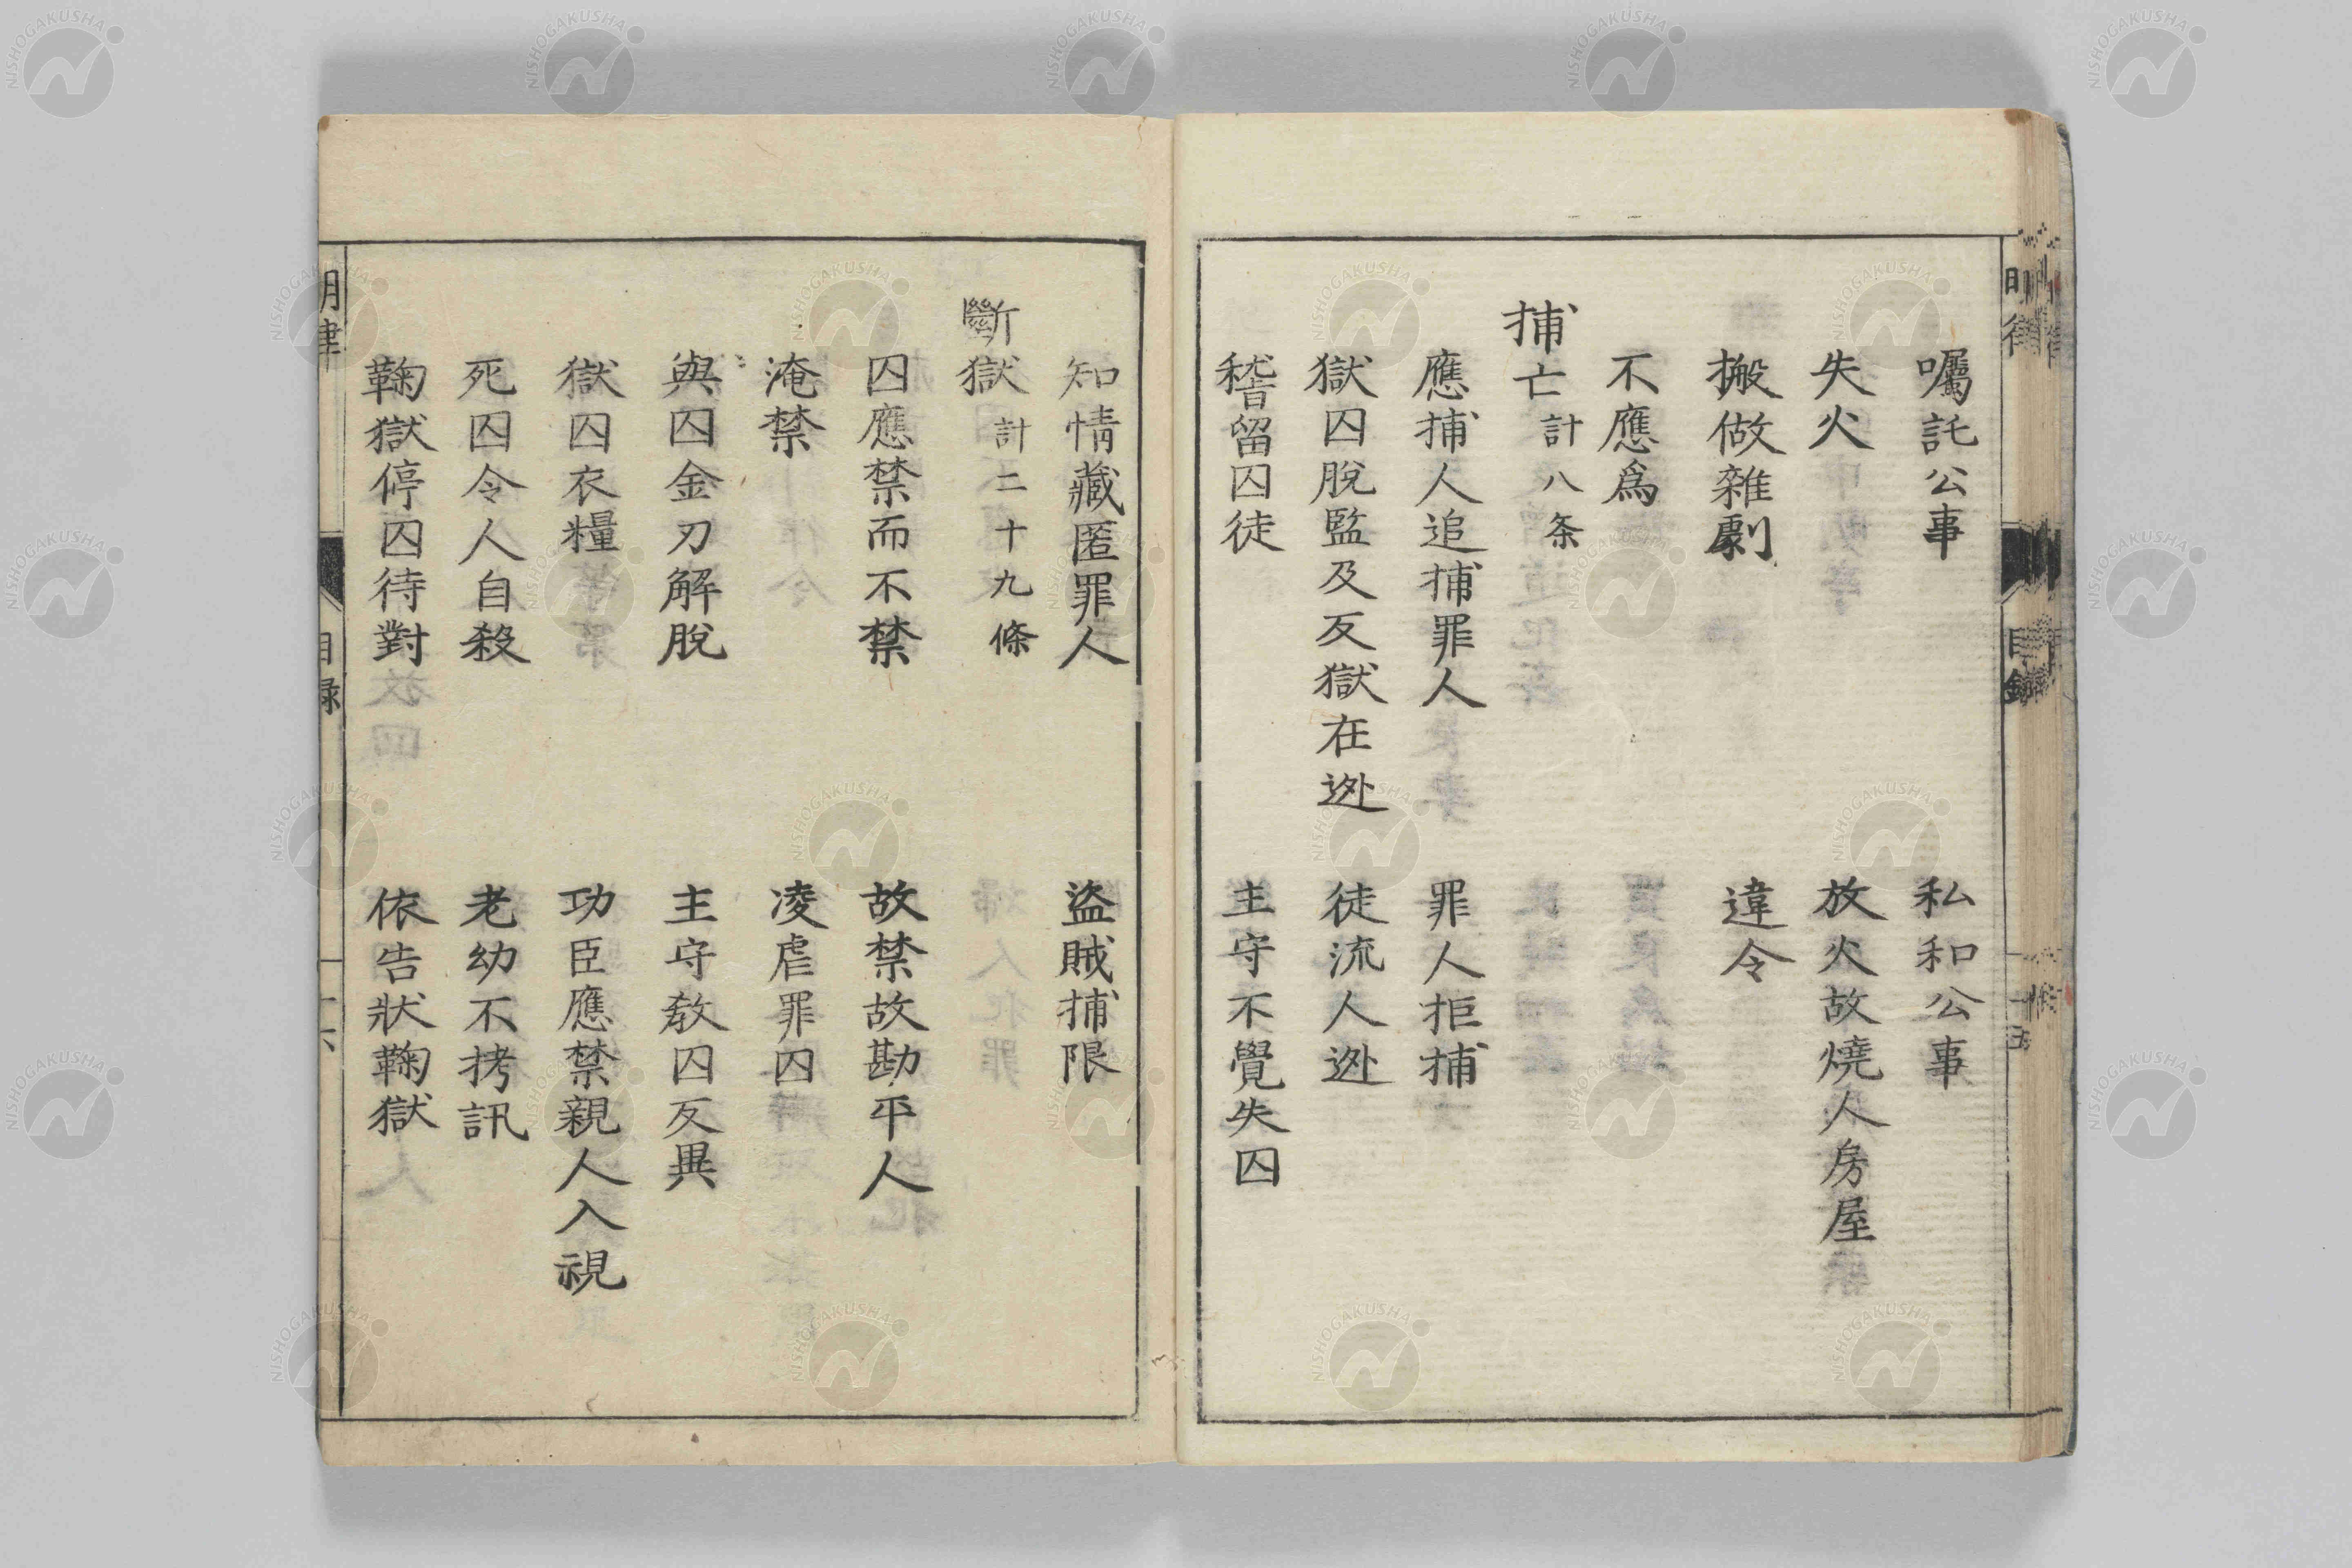 囑託公事　私和公事
失火　放火故燒人房屋
搬做雜劇　違令
不應爲
捕亡計八条
應捕人追捕罪人　罪人拒捕
獄囚脫監及反獄在逃　徒流人逃
稽留囚徒　主守不覺失囚
知情藏匿罪人　盜賊捕限
斷獄計二十九條
囚應禁而不禁　故禁故勘平人
淹禁　凌虐罪囚
與囚金刃解脫　主守教囚反異
獄囚衣糧　功臣應禁親人入視
死囚令人自殺　老幼不拷訊
鞫獄停囚待對　依告狀鞫獄
明律　目錄
NISHOGAKUSHA